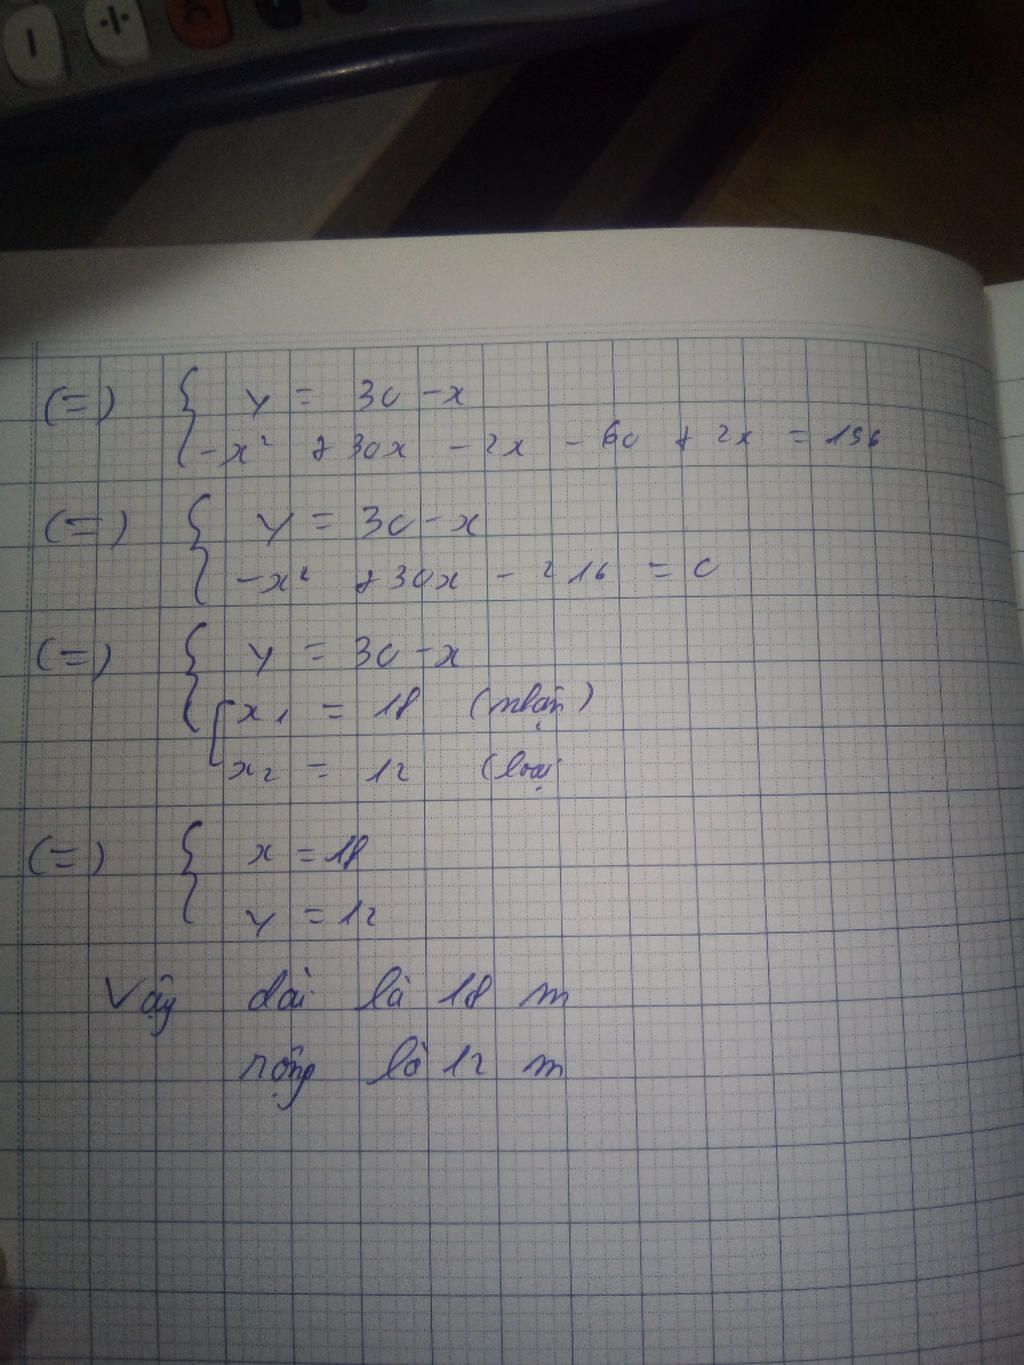 (=) { y = 30 - x
-x² + 30x - 2x - 60 + 2x = 156
(=) { y = 30 - x
-x² + 30x - 216 = 0
(=) { y = 30 - x
[ x₁ = 18 (nhận)
x₂ = 12 (loại
(=) { x = 18
y = 12
Vậy dài là 18 m
rộng là 12 m